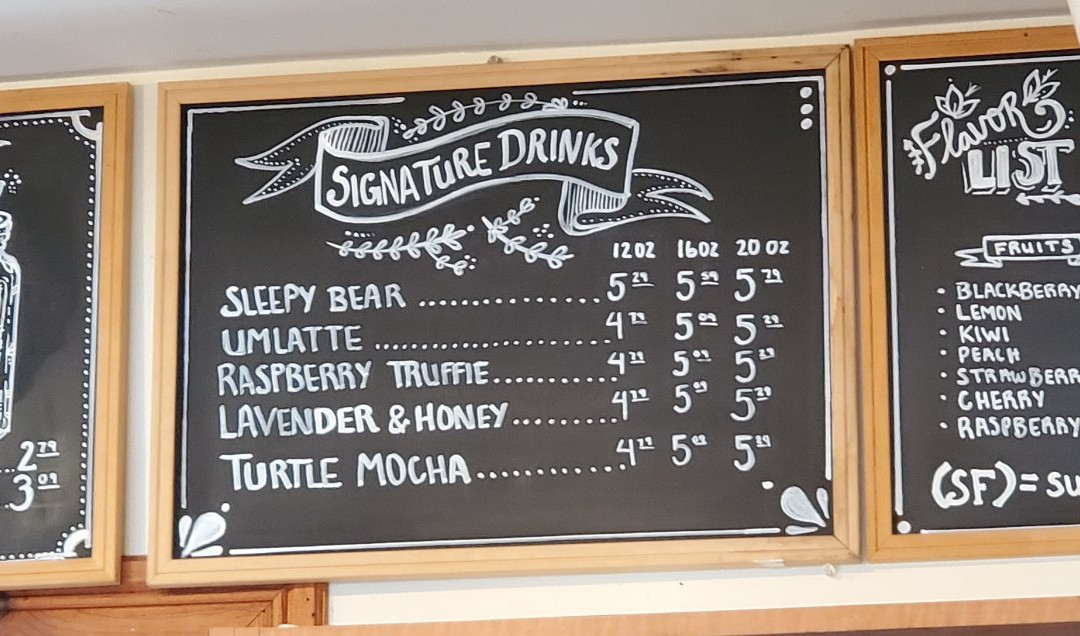 SIGNATURE DRINKS
12 OZ 16 OZ 20 OZ
SLEEPY BEAR .............. 5 29 5 59 5 79
UMLATTE .................. 4 79 5 09 5 29
RASPBERRY TRUFFIE............ 4 79 5 09 5 29
LAVENDER & HONEY.......... 4 79 5 09 5 29
TURTLE MOCHA............. 4 79 5 09 5 29
2 79
3 09
Flavor
LIST
FRUITS
• BLACKBERRY
• LEMON
• KIWI
• PEACH
• STRAWBERR
• CHERRY
• RASPBERRY
(SF) = SU